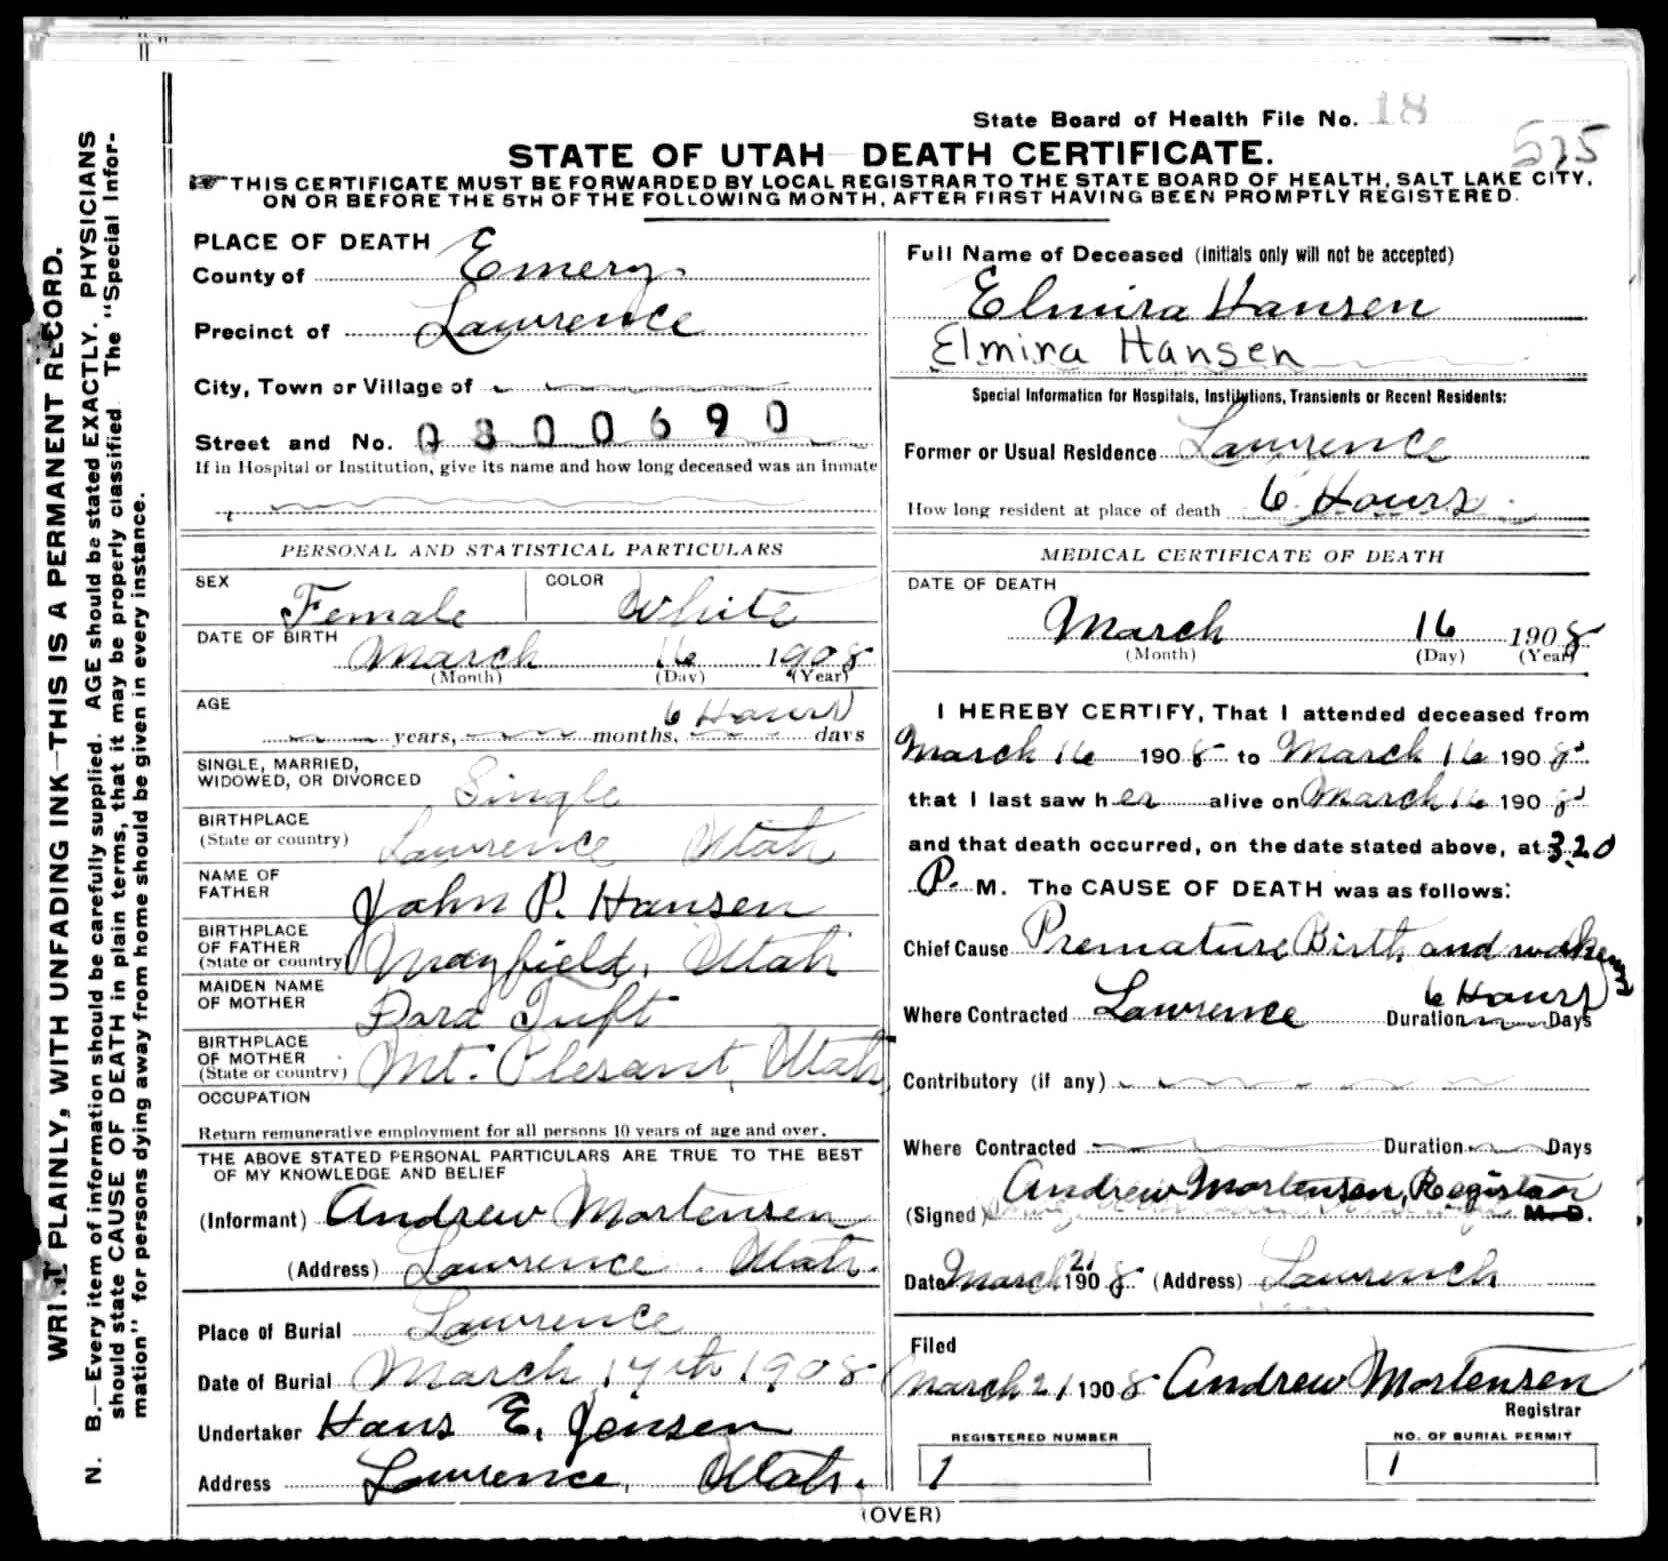 State Board of Health File No. 18
575
STATE OF UTAH DEATH CERTIFICATE.
THIS CERTIFICATE MUST BE FORWARDED BY LOCAL REGISTRAR TO THE STATE BOARD OF HEALTH, SALT LAKE CITY,
ON OR BEFORE THE 5TH OF THE FOLLOWING MONTH, AFTER FIRST HAVING BEEN PROMPTLY REGISTERED.
WRITE PLAINLY, WITH UNFADING INK—THIS IS A PERMANENT RECORD.
N. B.—Every item of information should be carefully supplied. AGE should be stated EXACTLY. PHYSICIANS
should state CAUSE OF DEATH in plain terms, that it may be properly classified. The "Special Infor-
mation" for persons dying away from home should be given in every instance.
PLACE OF DEATH
County of Emery
Precinct of Lawrence
City, Town or Village of
Street and No. 0300690
If in Hospital or Institution, give its name and how long deceased was an inmate
PERSONAL AND STATISTICAL PARTICULARS
SEX Female COLOR White
DATE OF BIRTH
March 16 1908
(Month) (Day) (Year)
AGE
6 Hours
years, months, days
SINGLE, MARRIED,
WIDOWED, OR DIVORCED Single
BIRTHPLACE
(State or country) Lawrence Utah
NAME OF
FATHER John P. Hansen
BIRTHPLACE
OF FATHER
(State or country) Mayfield, Utah
MAIDEN NAME
OF MOTHER Dora Tuft
BIRTHPLACE
OF MOTHER
(State or country) Mt. Plesant, Utah
OCCUPATION
Return remunerative employment for all persons 10 years of age and over.
THE ABOVE STATED PERSONAL PARTICULARS ARE TRUE TO THE BEST
OF MY KNOWLEDGE AND BELIEF
(Informant) Andrew Mortensen
(Address) Lawrence. Utah.
Place of Burial Lawrence
Date of Burial March 17th 1908
Undertaker Hans E. Jensen
Address Lawrence, Utah.
Full Name of Deceased (Initials only will not be accepted)
Elmira Hansen
Elmira Hansen
Special Information for Hospitals, Institutions, Transients or Recent Residents:
Former or Usual Residence Lawrence
How long resident at place of death 6 Hours
MEDICAL CERTIFICATE OF DEATH
DATE OF DEATH
March 16 1908
(Month) (Day) (Year)
I HEREBY CERTIFY, That I attended deceased from
March 16 1908 to March 16 1908
that I last saw her alive on March 16 1908
and that death occurred, on the date stated above, at 3.20
P. M. The CAUSE OF DEATH was as follows:
Chief Cause Premature Birth and
6 Hours
Where Contracted Lawrence Duration Days
Contributory (if any)
Where Contracted Duration Days
Andrew Mortensen, Registrar
(Signed) M. D.
Date March 21 1908 (Address) Lawrence
Filed
March 21 1908 Andrew Mortensen
Registrar
REGISTERED NUMBER
1
NO. OF BURIAL PERMIT
1
(OVER)